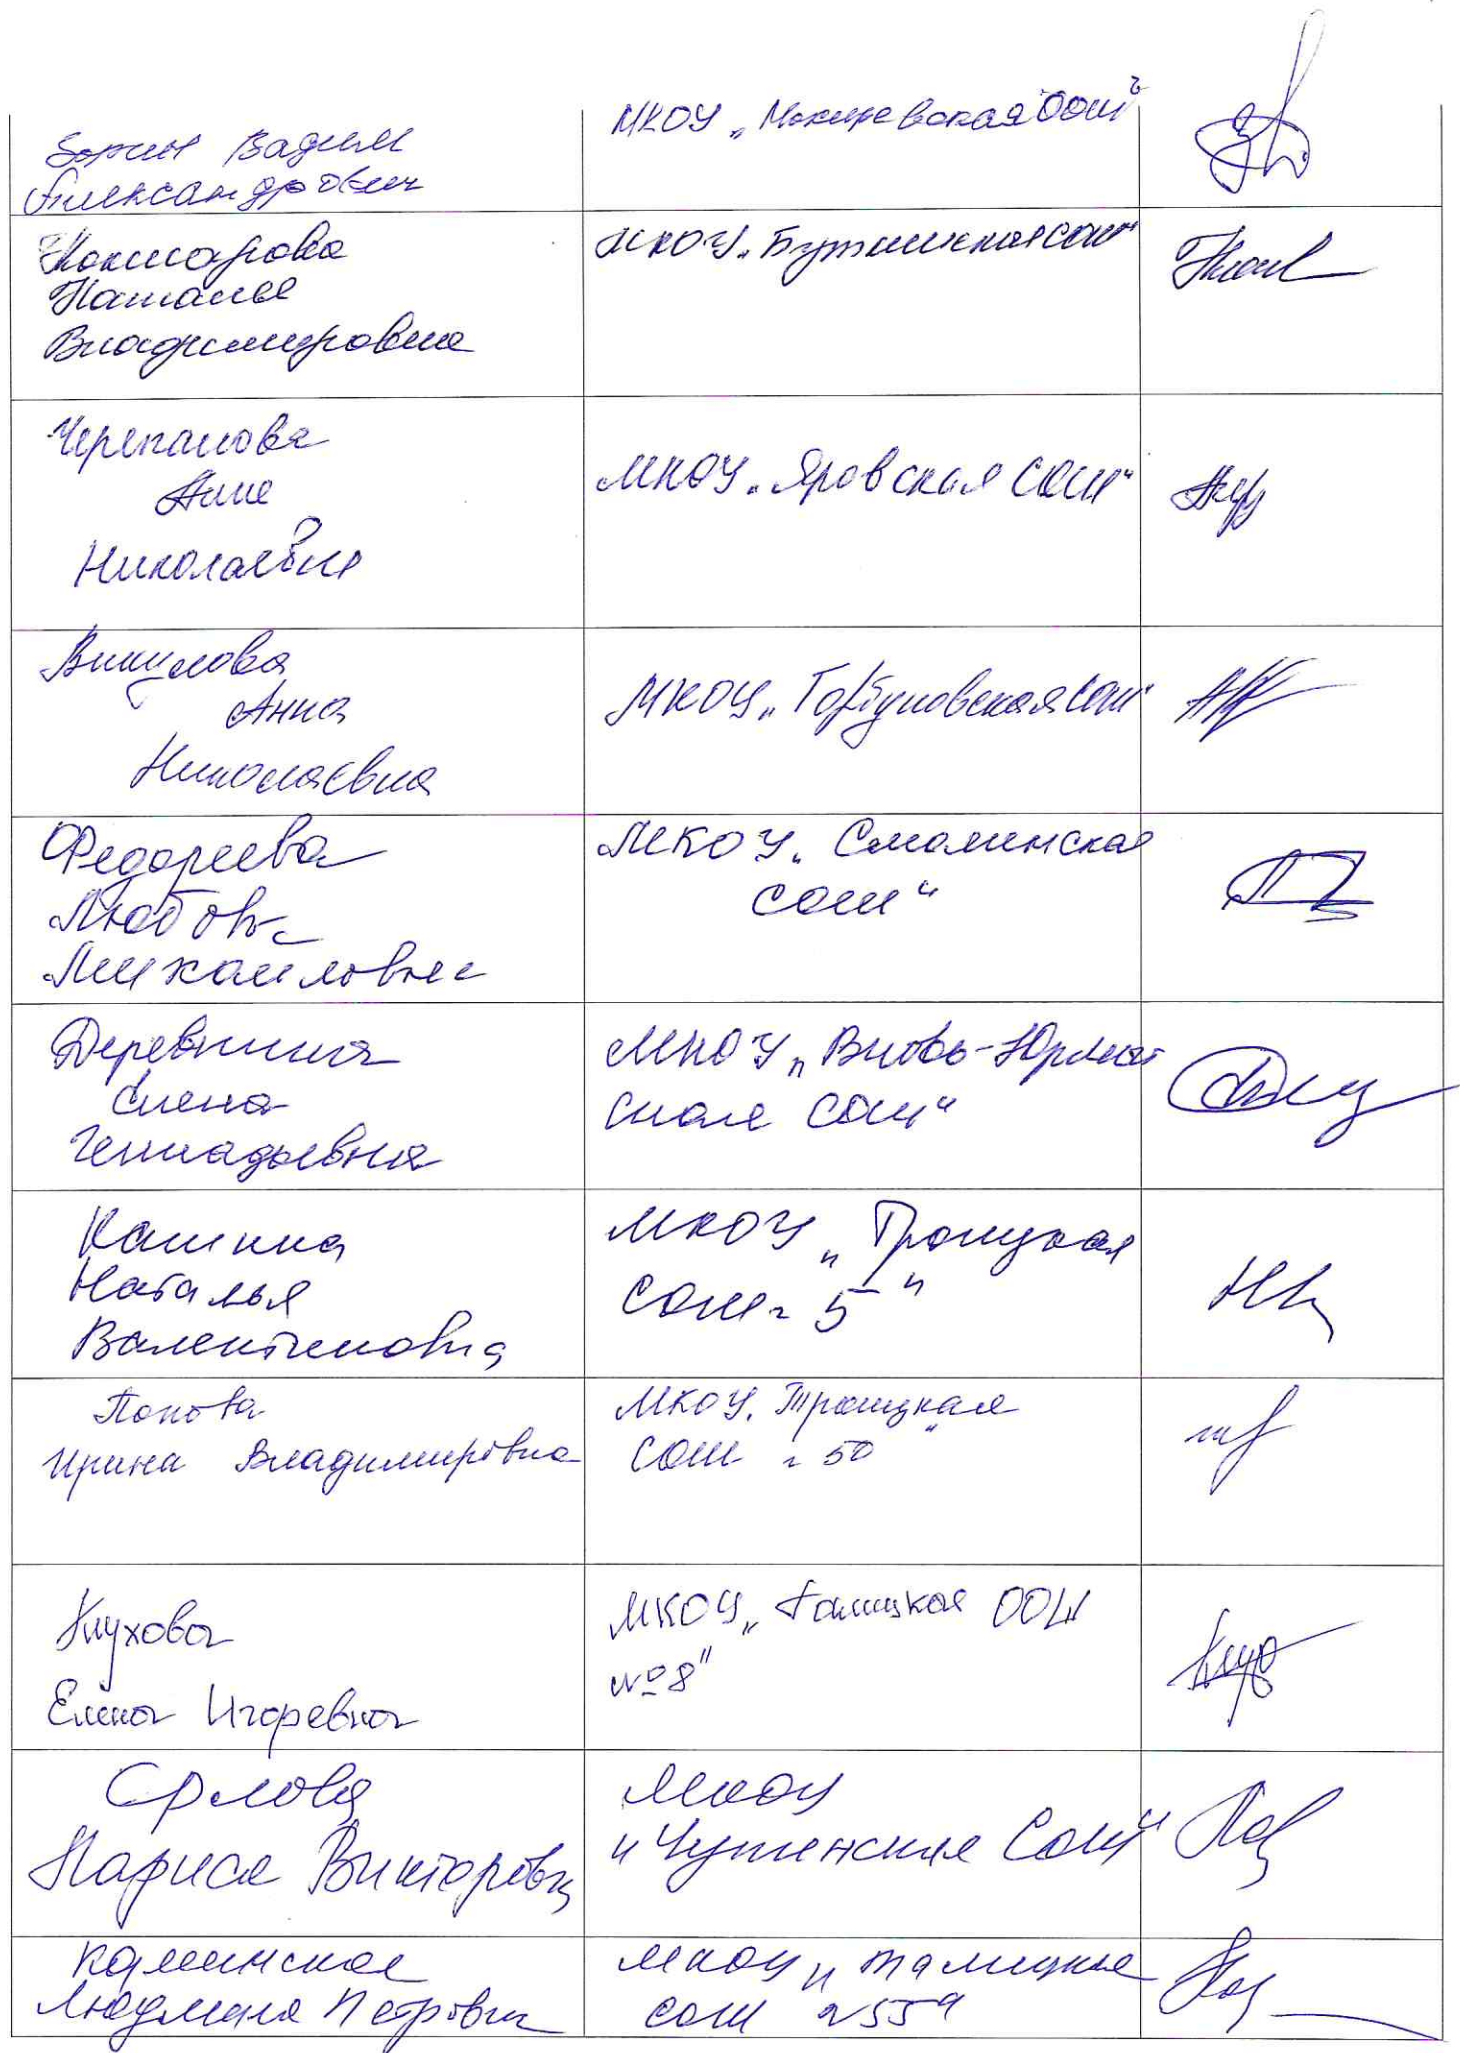 Вадим
Александрович
МКОУ „Мохиревская ООШ"
Кокшарова
Наталья
Владимировна
МКОУ „Буткинская СОШ"
Черепанова
Анна
Николаевна
МКОУ „Яровская СОШ"
Викулова
Анна
Николаевна
МКОУ „Горбуновская СОШ"
Федореева
Любовь
Михайловна
МКОУ „Смолинская
СОШ"
Деревнина
Елена
Геннадьевна
МКОУ „Вновь-Юрмыт
ская СОШ"
Кашина
Наталья
Валентиновна
МКОУ „Троицкая
СОШ 5"
Попова
Ирина Владимировна
МКОУ „Троицкая
СОШ 50"
Клухова
Елена Игоревна
МКОУ „Талицкая ООШ
№8"
Орлова
Лариса Викторовна
МКОУ
„Чупинская СОШ"
Каминская
Людмила Петровна
МКОУ „Талицкая
СОШ №55"